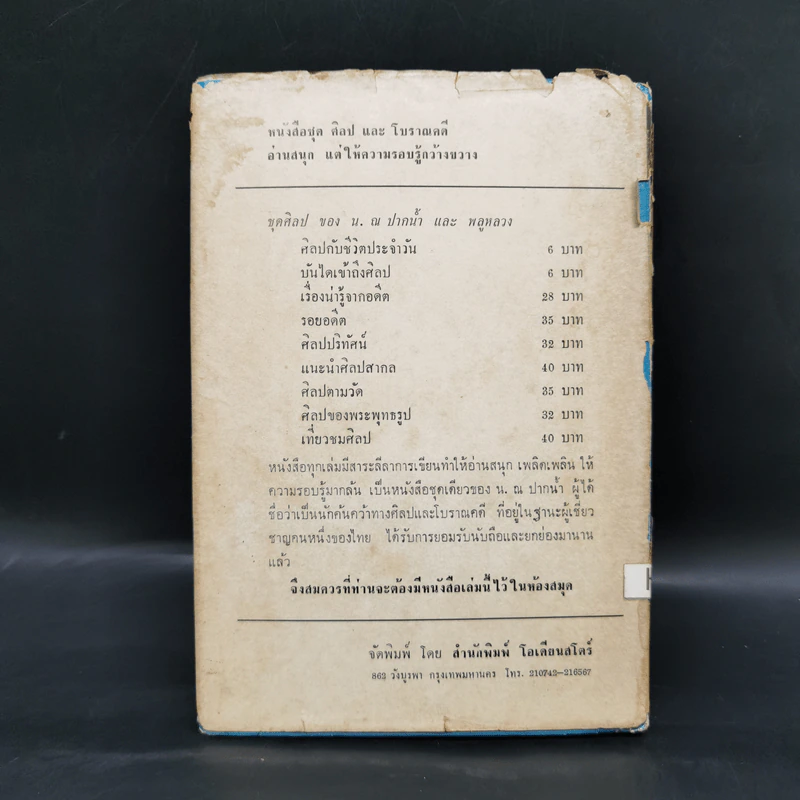 หนังสือชุด ศิลป และ โบราณคดี
อ่านสนุก แต่ให้ความรอบรู้กว้างขวาง
ชุดศิลป ของ น. ณ ปากน้ำ และ พลูหลวง
ศิลปกับชีวิตประจำวัน 6 บาท
บันไดเข้าถึงศิลป 6 บาท
เรื่องน่ารู้จากอดีต 28 บาท
รอยอดีต 35 บาท
ศิลปปริทัศน์ 32 บาท
แนะนำศิลปสากล 40 บาท
ศิลปตามวัด 35 บาท
ศิลปของพระพุทธรูป 32 บาท
เที่ยวชมศิลป 40 บาท
หนังสือทุกเล่มมีสาระลีลาการเขียนทำให้อ่านสนุก เพลิดเพลิน ให้
ความรอบรู้มากล้น เป็นหนังสือชุดเดียวของ น. ณ ปากน้ำ ผู้ได้
ชื่อว่าเป็นนักค้นคว้าทางศิลปและโบราณคดี ที่อยู่ในฐานะผู้เชี่ยว
ชาญคนหนึ่งของไทย ได้รับการยอมรับนับถือและยกย่องมานาน
แล้ว
จึงสมควรที่ท่านจะต้องมีหนังสือเล่มนี้ไว้ในห้องสมุด
จัดพิมพ์ โดย สำนักพิมพ์ โอเดียนสโตร์
862 วังบูรพา กรุงเทพมหานคร โทร. 210742-216567